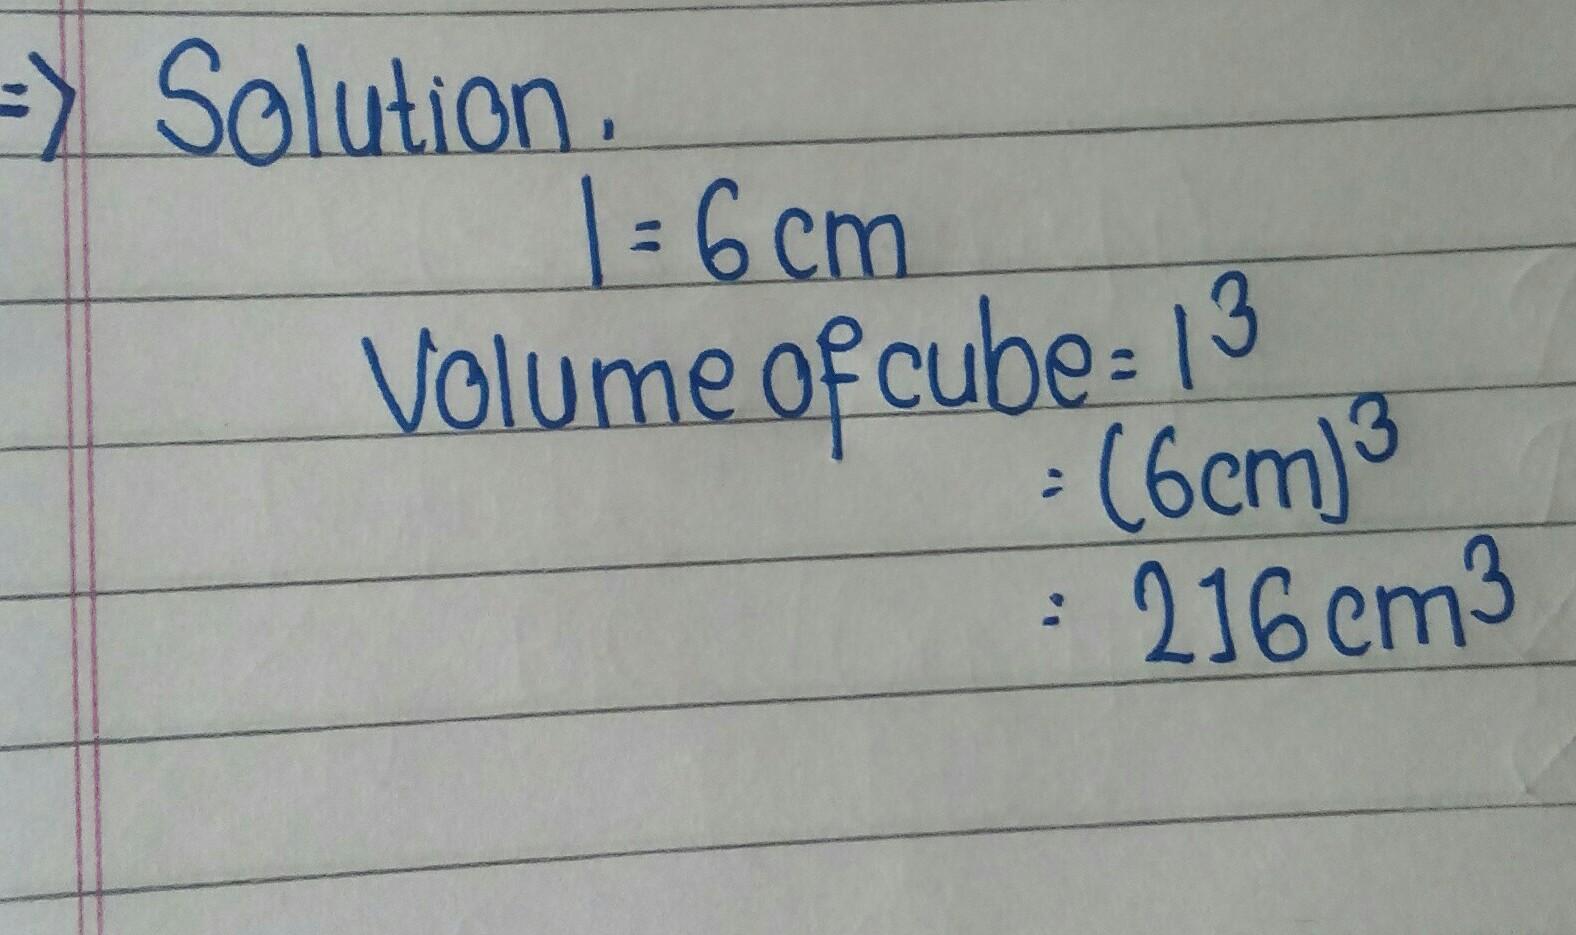 => Solution.
l = 6 cm
Volume of cube = l³
= (6cm)³
= 216 cm³